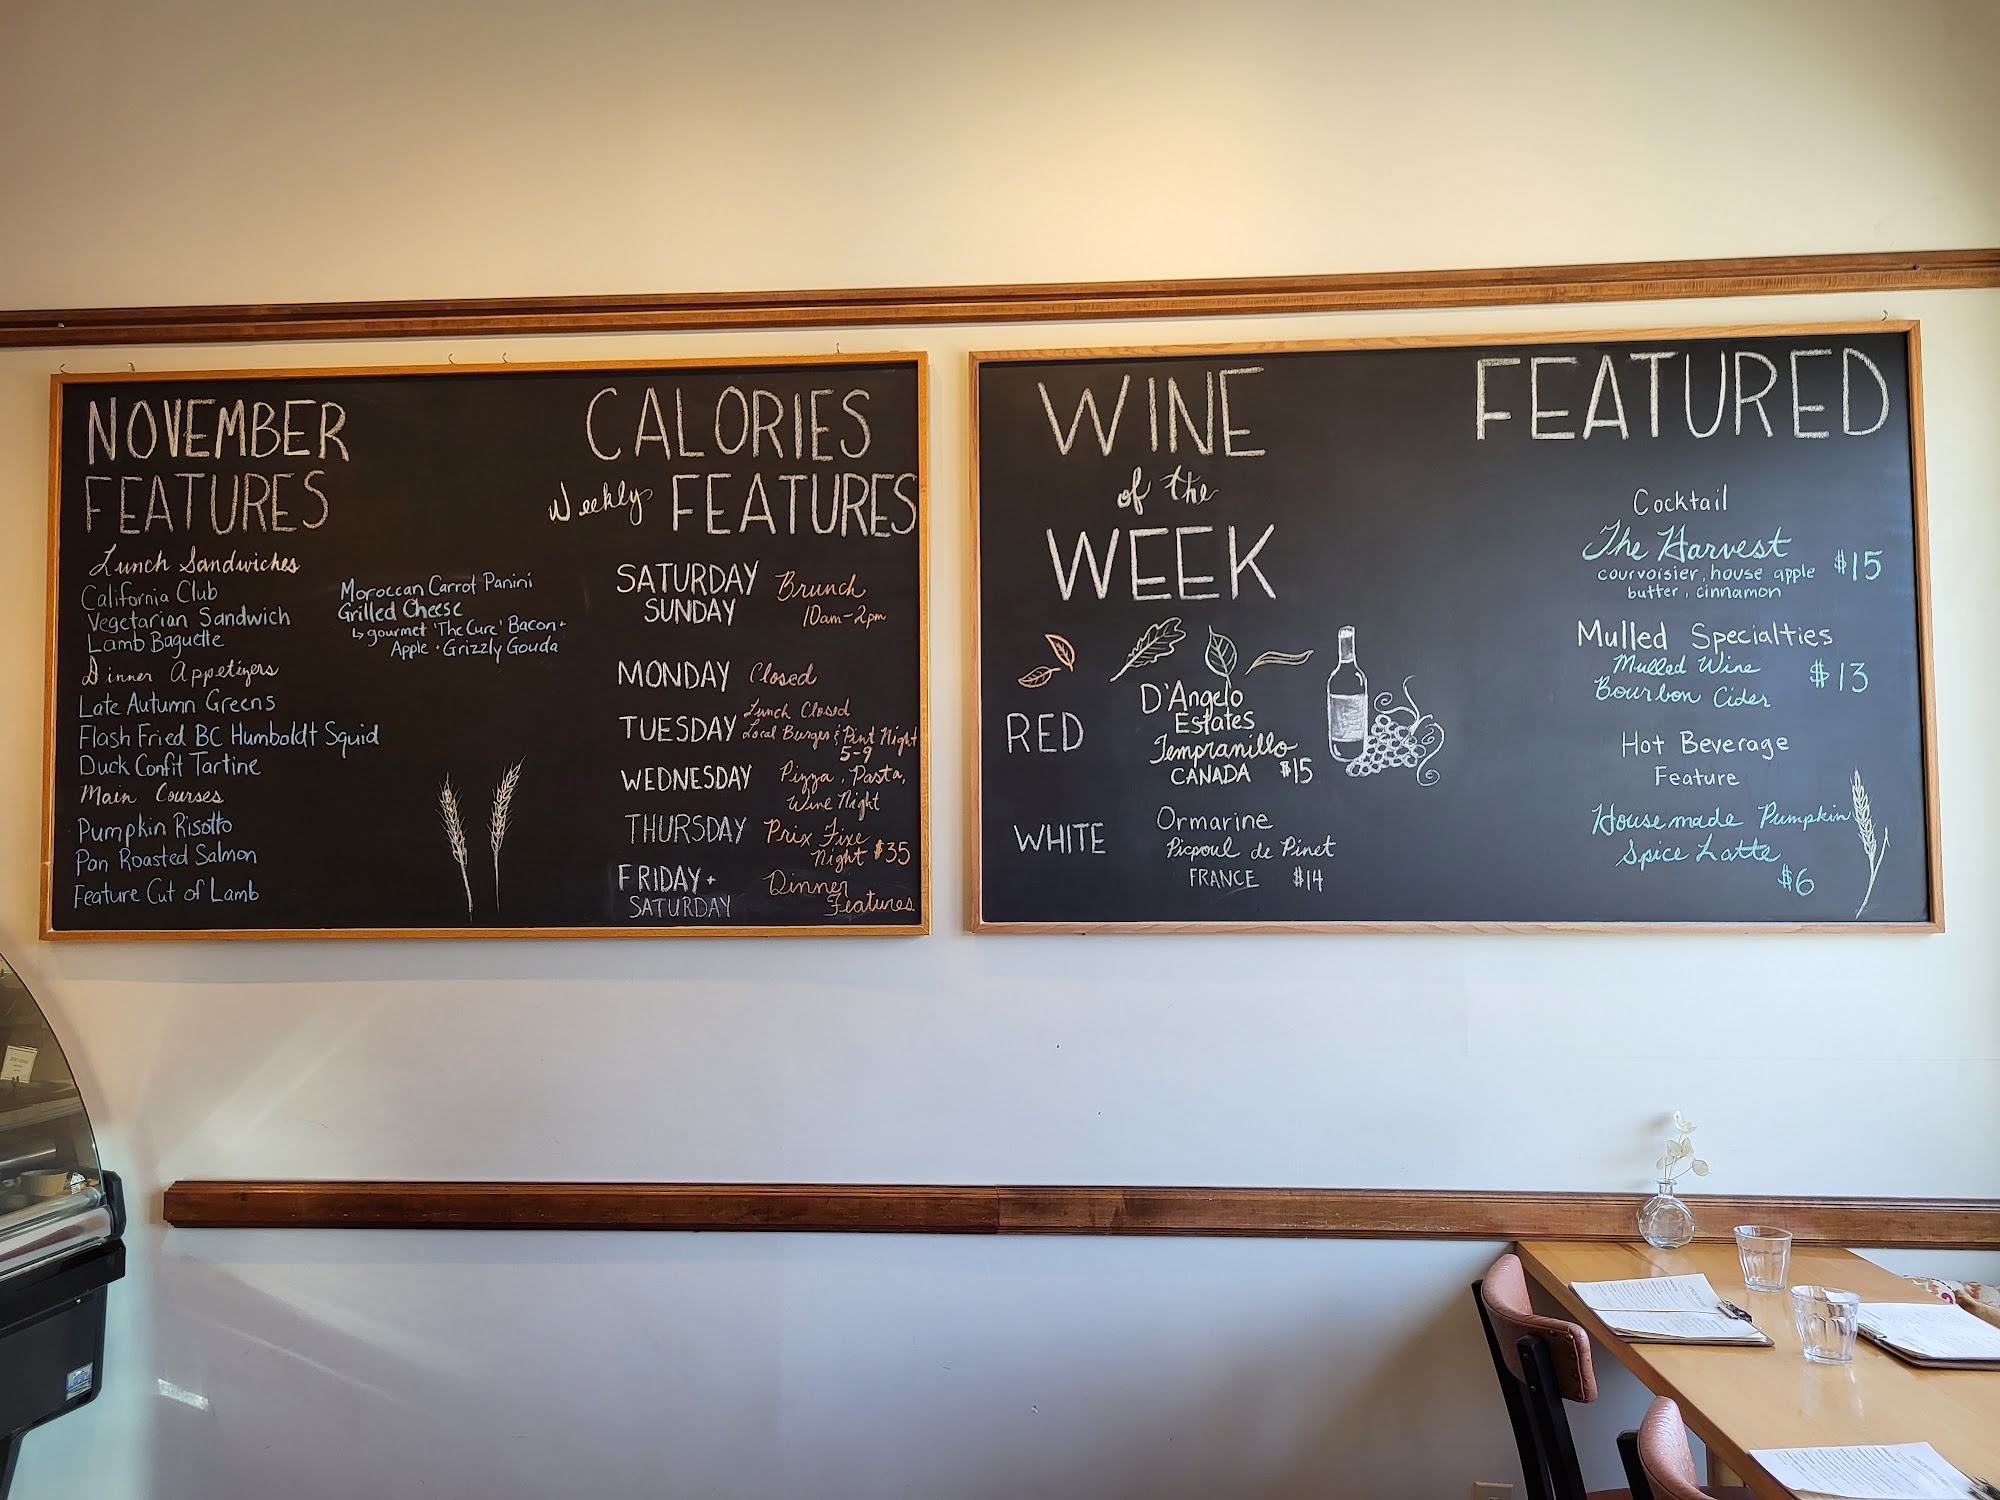 NOVEMBER
FEATURES
Lunch Sandwiches
California Club
Vegetarian Sandwich
Lamb Baguette
Moroccan Carrot Panini
Grilled Cheese
↳ gourmet 'The Cure' Bacon +
Apple + Grizzly Gouda
Dinner Appetizers
Late Autumn Greens
Flash Fried BC Humboldt Squid
Duck Confit Tartine
Main Courses
Pumpkin Risotto
Pan Roasted Salmon
Feature Cut of Lamb
CALORIES
Weekly FEATURES
SATURDAY
SUNDAY
Brunch
10am-2pm
MONDAY Closed
TUESDAY
Lunch Closed
Local Burger & Pint Night
5-9
WEDNESDAY
Pizza, Pasta,
Wine Night
THURSDAY
Prix Fixe
Night $35
FRIDAY +
SATURDAY
Dinner
Features
WINE
of the
WEEK
RED
D'Angelo
Estates
Tempranillo
CANADA $15
WHITE
Ormarine
Picpoul de Pinet
FRANCE $14
FEATURED
Cocktail
The Harvest $15
courvoisier, house apple
butter, cinnamon
Mulled Specialties
Mulled Wine
Bourbon Cider
$13
Hot Beverage
Feature
Housemade Pumpkin
Spice Latte
$6